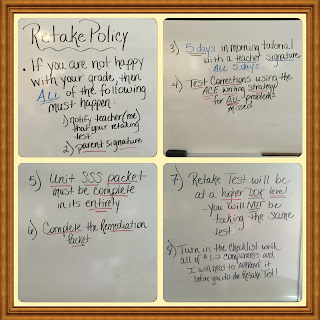 Retake Policy
• If you are not happy
with your grade, then
ALL of the following
must happen:
1) notify teacher (me)
that your retaking
test
2) parent signature
3) 5 days in morning tutorial
with a teacher signature
ALL 5 days
4) Test Corrections using the
ACE writing strategy
for ALL problems
missed
5) Unit SSS packet
must be complete
in its entirety
6) Complete the Remediation
Packet
7) Retake Test will be
at a higher DOK level
- you will NOT be
taking the same
test
8) Turn in the Checklist with
all of # 1-7 components and
I will need to APPROVE it
before you do the Retake Test!